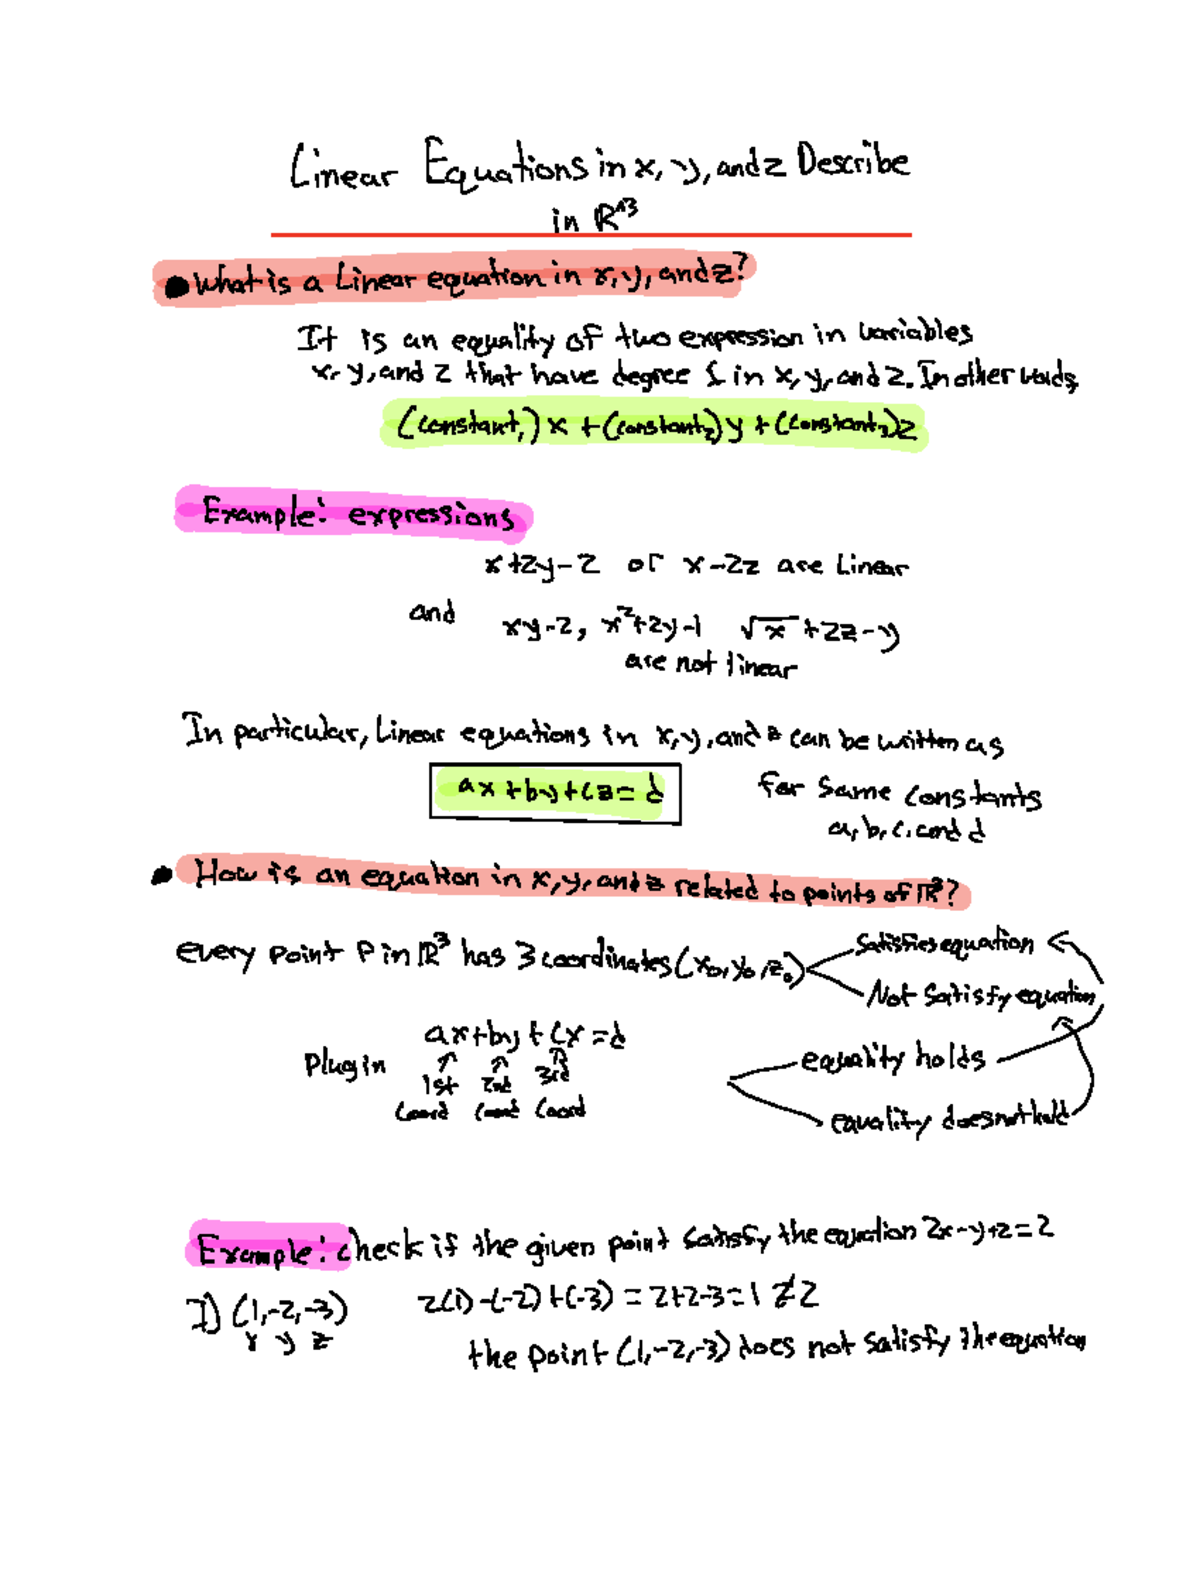 Linear Equations in x, y, and z Describe
in R^3
• What is a Linear equation in x, y, and z?
It is an equality of two expression in variables
x, y, and z that have degree 1 in x, y, and z. In other words,
(constant₁) x + (constant₂) y + (constant₃) z
Example: expressions
x+2y-z or x-2z are Linear
and
xy-z, x²+2y-1 √x+2z-y
are not linear
In particular, Linear equations in x, y, and z can be written as
ax+by+cz=d
for some constants
a, b, c, and d
• How is an equation in x, y, and z related to points of ℝ³?
every point P in ℝ³ has 3 coordinates (x₀, y₀, z₀)
Satisfies equation
Not satisfy equation
Plug in
ax+by+cx=d
1st 2nd 3rd
Coord Coord Coord
equality holds
equality does not hold
Example: check if the given point satisfy the equation 2x-y+z=2
I) (1,-2,-3)
x y z
2(1)-(-2)+(-3) = 2+2-3=1 ≠2
the point (1,-2,-3) does not satisfy the equation